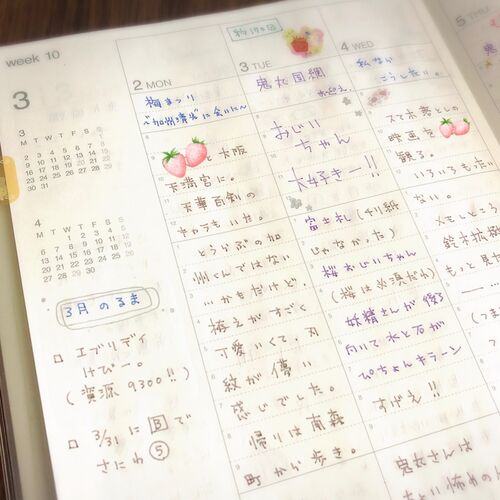 week 10
3
3
M T W T F S S
1
2 3 4 5 6 7 8
9 10 11 12 13 14 15
16 17 18 19 20 21 22
23 24 25 26 27 28 29
30 31
4
M T W T F S S
1 2 3 4 5
6 7 8 9 10 11 12
13 14 15 16 17 18 19
20 21 22 23 24 25 26
27 28 29 30
3月 のるま
エブリデイ
けびー。
(資源 9300!!)
3/31 に 日 で
さにわ ⑤
2 MON
梅まつり
"加州清光"に会いたん
と 大阪
天満宮に。
天華百剣の
キャラもいた。
とうらぶの加
州くんではない
…かもだけど。
梅えがすごく
可愛いくて、刃
紋が儚い
感じでした。
帰りは南森
町から歩き。
3 TUE
鬼丸国綱
お迎え。
おじい
ちゃん
大好きー!!
富士札(手川紙
じゃなかった)
桜おじいちゃん
(桜は必須だね)
妖精さんが傾
向いて水と石が
ぴちょんキラーン
すげえ!!
鬼丸さんは
4 WED
私なら
こうしたい。
スマホ落としの
映画を
観る。
いろいろもたい
ない。
鈴木拡樹
もっと見た
5 THU